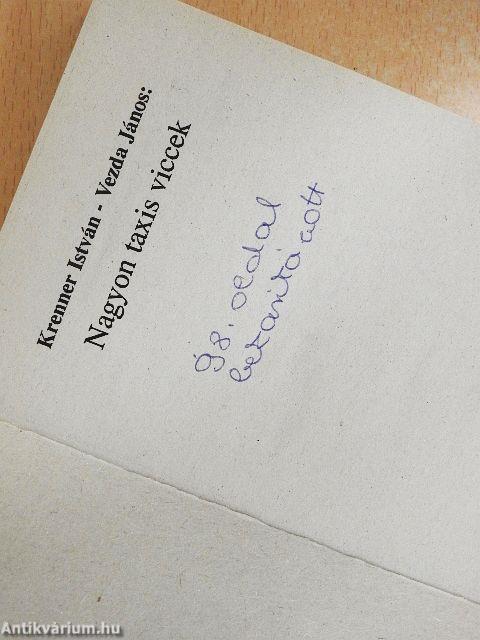 Krenner István - Vezda János:
Nagyon taxis viccek
98. oldal
Antikvárium.hu